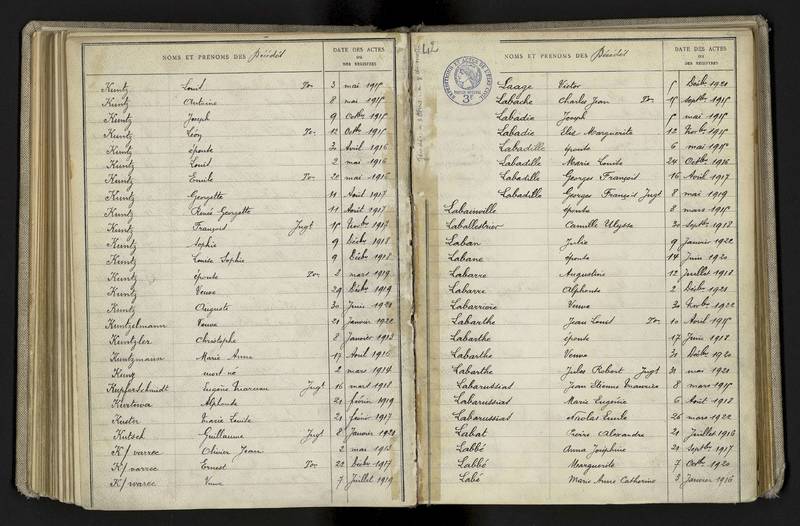 NOMS ET PRÉNOMS DES Décédés
DATE DES ACTES
OU
DES REGISTRES
Kuntz Louis Don 3 mai 1915
Kuntz Antoine 8 mai 1915
Kuntz Joseph 9 Octbre 1915
Kuntz Léon 12 Octbre 1915
Kuntz épouse 30 Avril 1916
Kuntz Louis 2 mai 1916
Kuntz Emile 20 mai 1916
Kuntz Georgette 11 Août 1917
Kuntz Renée Georgette 11 Août 1917
Kuntz François Jugt 15 Novbre 1917
Kuntz Sophie 9 Décbre 1918
Kuntz Louise Sophie 9 Décbre 1918
Kuntz épouse 2 mars 1919
Kuntz Veuve 29 Décbre 1919
Kuntz Auguste 30 Juin 1920
Kuntzelmann Veuve 21 Janvier 1922
Kuntzler Christophe 8 Janvier 1913
Kuntzmann Marie Anne 17 Avril 1916
Kunz mort né 2 mars 1914
Kupferschmidt Eugène Marceau Jugt 16 mars 1918
Kurtowa Alphonse 21 février 1919
Kuster Marie Louise 21 février 1917
Kutsch Guillaume Jugt 8 Janvier 1920
K/varrec Olivier Jean 2 mai 1913
K/varrec Ernest 22 Décbre 1917
K/warec Veuve 7 Juillet 1919
42
NOMS ET PRÉNOMS DES Décédés
DATE DES ACTES
OU
DES REGISTRES
3F
Laage Victor 5 Décbre 1921
Labache Charles Jean 15 Septbre 1915
Labadie Joseph 5 mai 1915
Labadie Elise Marguerite 12 Novbre 1915
Labadille épouse 6 mai 1915
Labadille Marie Louise 24 Octbre 1916
Labadille Georges François 16 Avril 1917
Labadille Georges François Jugt 8 mai 1919
Labainville épouse 8 mars 1915
Laballestrier Camille Ulysse 30 Septbre 1918
Laban Julie 9 Janvier 1922
Labane épouse 14 Juin 1920
Labarre Augustine 12 Juillet 1918
Labarre Alphonse 2 Décbre 1921
Labarrière Veuve 30 Novbre 1922
Labarthe Jean Louis 10 Avril 1915
Labarthe épouse 17 Juin 1918
Labarthe Veuve 31 Décbre 1920
Labarthe Jules Robert Jugt 31 mai 1921
Labarussias Jean Etienne Maurice 8 mars 1915
Labarussias Marie Eugénie 6 Août 1918
Labarussias Nicolas Emile 26 mars 1922
Labat Pierre Alexandre 21 Juillet 1916
Labbé Anna Joséphine 21 Septbre 1917
Labbé Marguerite 7 Octbre 1920
Labé Marie Anne Catherine 3 Janvier 1916